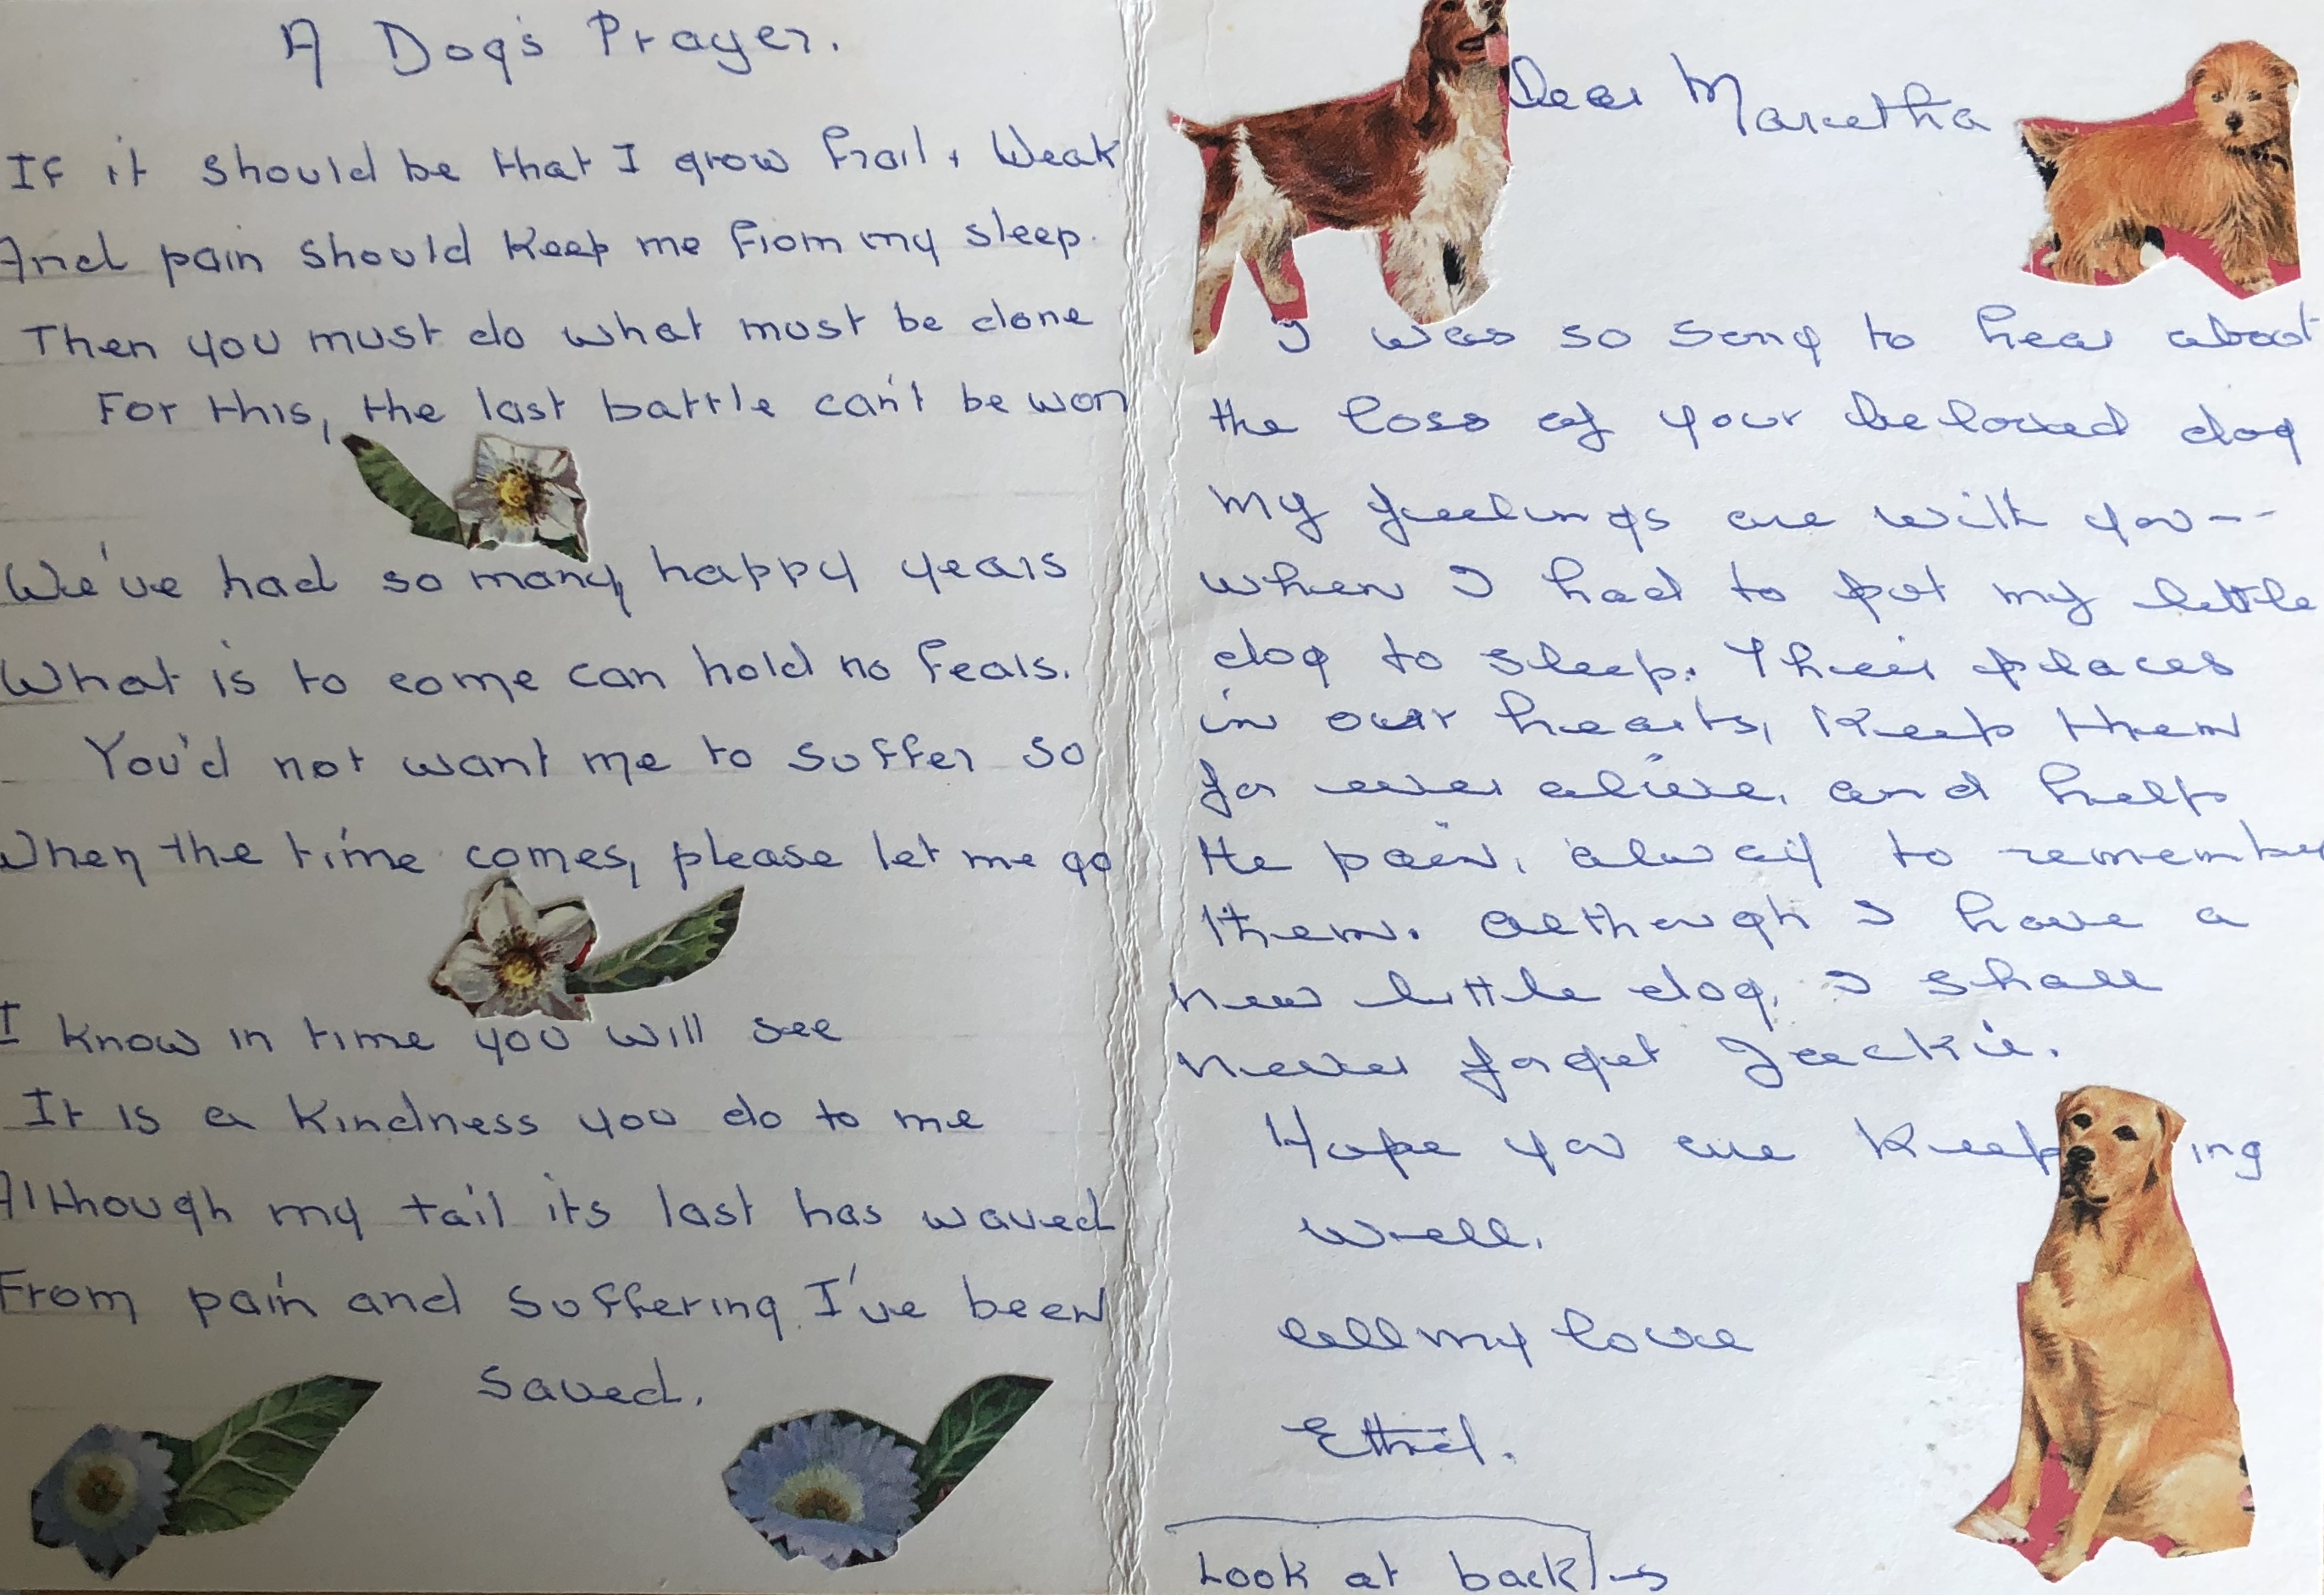 A Dog's Prayer.
If it should be that I grow frail + Weak
And pain should keep me from my sleep.
Then you must do what must be done
For this, the last battle can't be won
We've had so many happy years
What is to come can hold no fears.
You'd not want me to suffer so
When the time comes, please let me go
I know in time you will see
It is a kindness you do to me
Although my tail its last has waved
From pain and suffering I've been
saved.
Dear Maretha
I was so sorry to hear about
the loss of your beloved dog
my feelings are with you--
when I had to put my little
dog to sleep. Their places
in our hearts, keep them
for ever alive, and help
the pain, always to remember
them. Although I have a
new little dog, I shall
never forget Jackie.
Hope you are keeping
well.
all my love
Ethel.
Look at back →